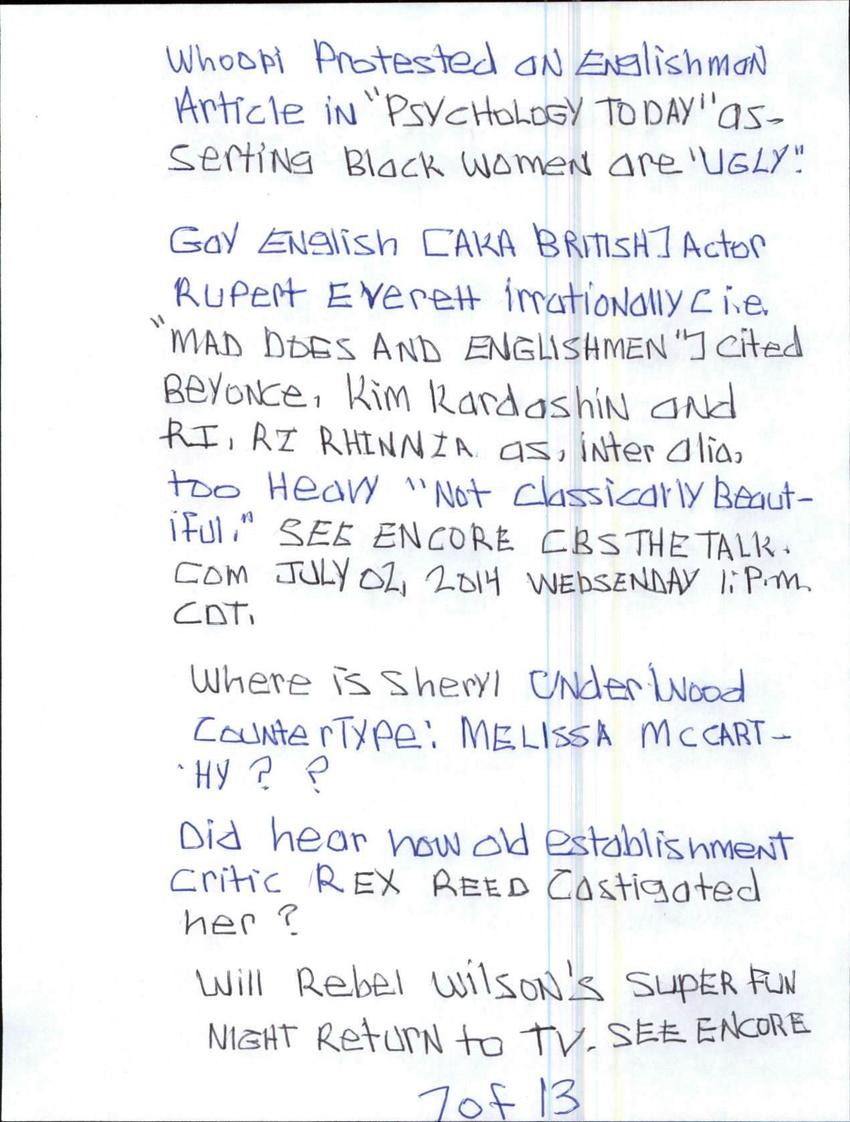 Whoopi Protested an Englishman
Article in "PSYCHOLOGY TODAY" as-
serting Black women are 'UGLY".
Gay English [AKA BRITISH] Actor
Rupert Everett irrationally [i.e.
"MAD DOGS AND ENGLISHMEN"] cited
Beyonce, Kim Kardashin and
RI, RI RHINNIA as, inter alia,
too Heavy "Not classicarly Beaut-
iful." SEE ENCORE CBSTHETALK.
COM JULY 02, 2014 WEDSENDAY 1:P.m.
CDT.
Where is Sheryl Underwood
CounterType: MELISSA MCCART-
HY ? ?
Did hear how old establishment
critic REX REED Castigated
her ?
Will Rebel Wilson's SUPER FUN
NIGHT Return to TV. SEE ENCORE
7 of 13